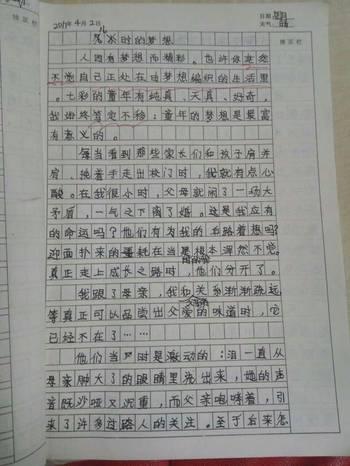 2019年4月2日
日期
天气 晴
儿时的梦想
批改栏
人因有梦想而精彩。也许你幸然
不觉自己正处在由梦想编织的生活里
。七彩的童年有纯真、天真、好奇,
我始终坚定不移:童年的梦想是最富
有意义的。
每当看到那些家长们和孩子肩并
肩、挽着手走出校门时,我就有点心
酸。在我很小时,父母就闹了一场大
矛盾,一气之下离了婚。这是我应有
的命运吗?他们有为我的 路着想吗?
迎面扑来的噩耗在当 根本浑然不觉。
真正走上成长之路时,他们分开了。
我跟了母亲,我和 关系渐渐疏远,
等真正可以品尝出父爱的味道时,它
已经不在了……
他们当时是激动的:泪一直从
母亲肿大了的眼睛里流出来,她的声
音既沙哑又沉重,而父亲咆哮着,引
来了许多过路人的关注。至于后来怎